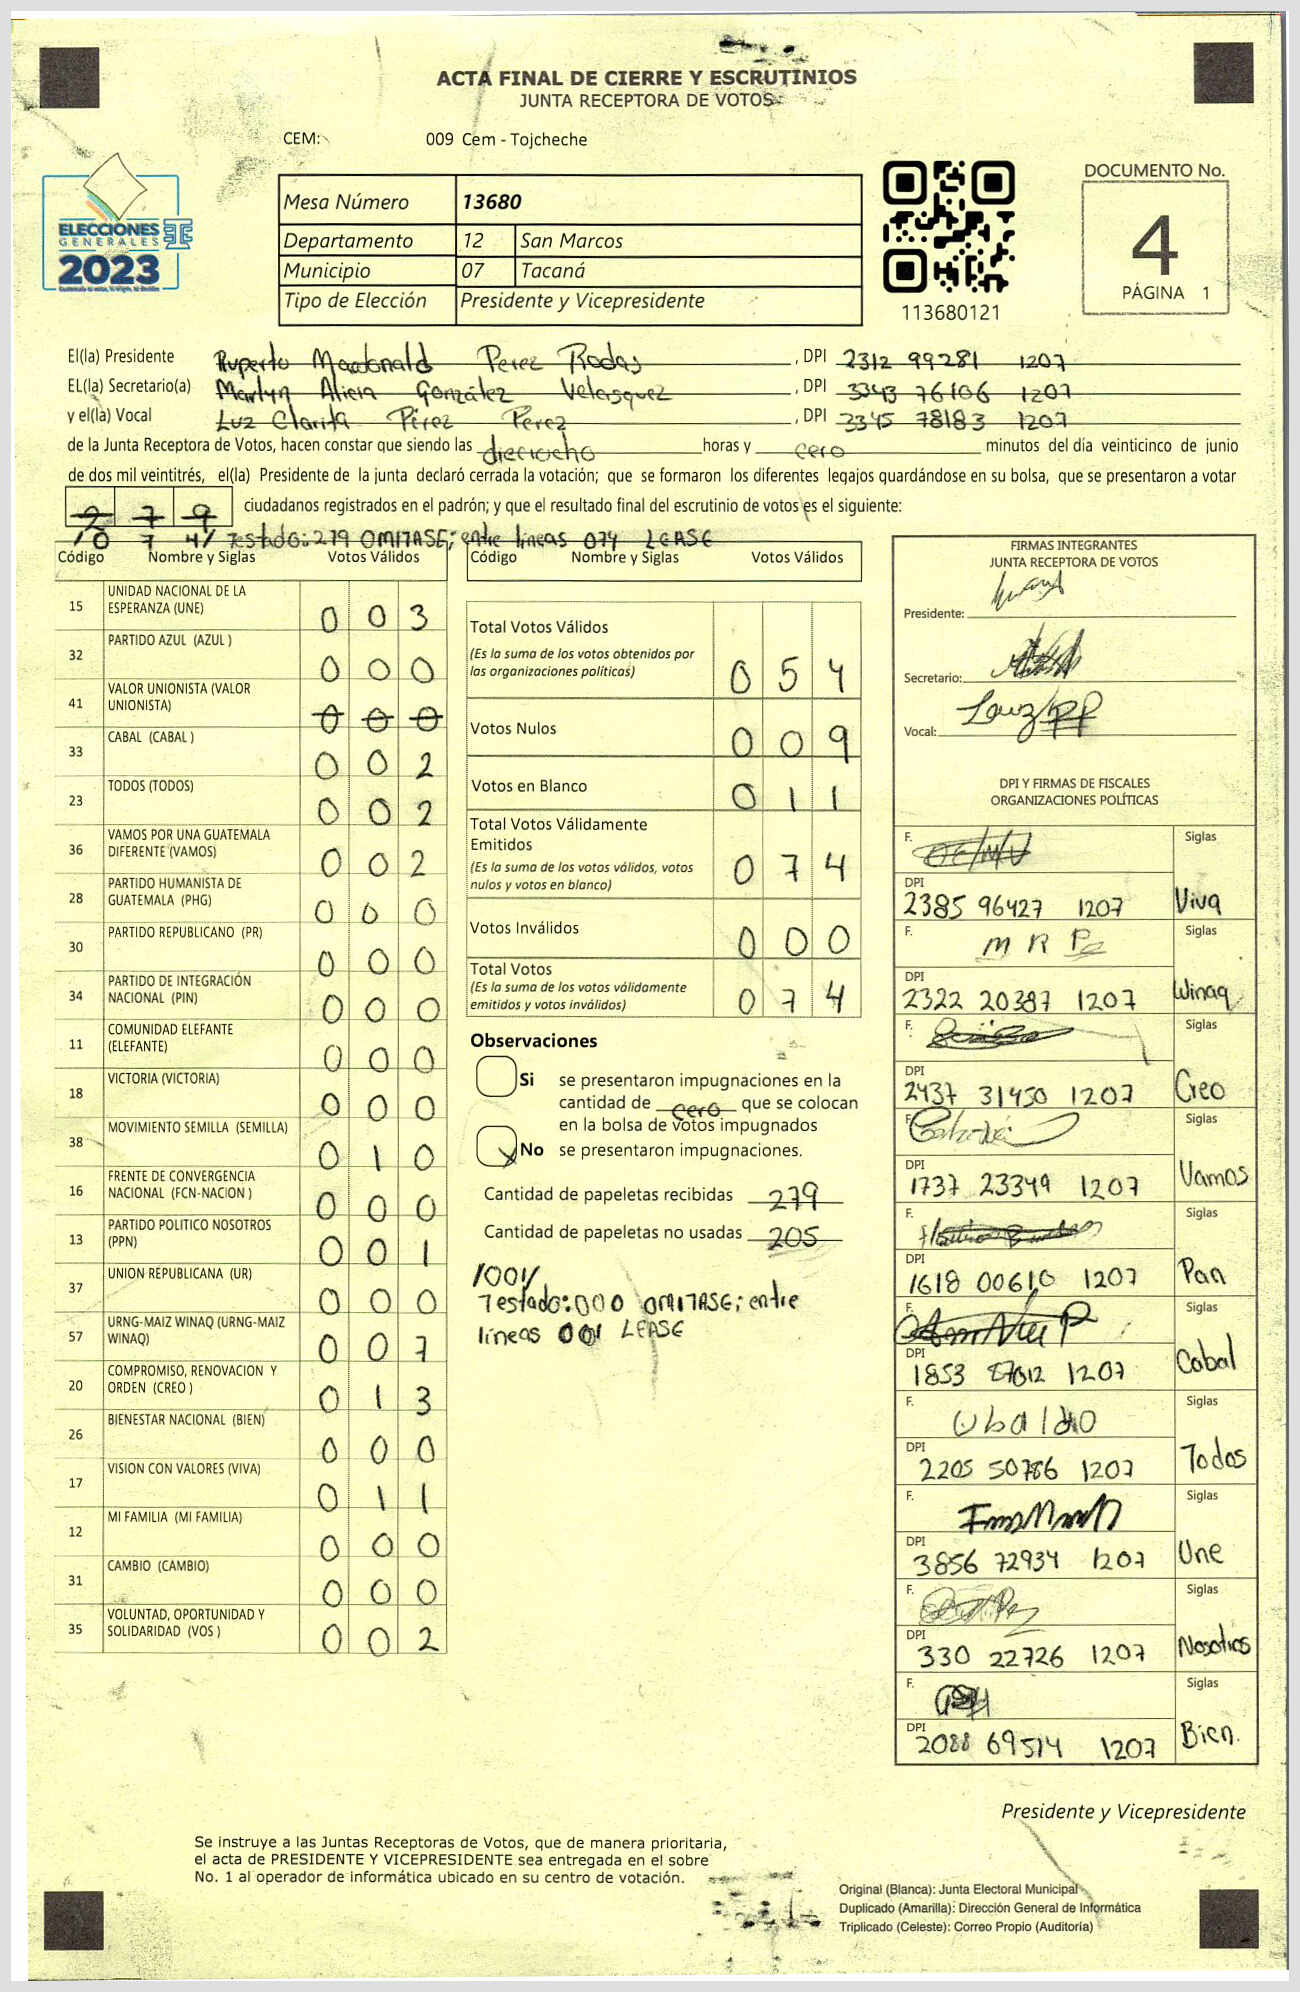 ACTA FINAL DE CIERRE Y ESCRUTINIOS
JUNTA RECEPTORA DE VOTOS
CEM: 009 Cem - Tojcheche
ELECCIONES
GENERALES
2023
Mesa Número 13680
Departamento 12 San Marcos
Municipio 07 Tacaná
Tipo de Elección Presidente y Vicepresidente
113680121
DOCUMENTO No.
4
PÁGINA 1
El(la) Presidente Ruperto Macdonald Perez Rodas, DPI 2312 99281 1207
EL(la) Secretario(a) Marlyn Alicia González Velasquez, DPI 3343 76106 1207
y el(la) Vocal Luz Clarita Pérez Perez, DPI 3345 78183 1207
de la Junta Receptora de Votos, hacen constar que siendo las dieciocho horas y cero minutos del día veinticinco de junio
de dos mil veintitrés, el(la) Presidente de la junta declaró cerrada la votación; que se formaron los diferentes legajos guardándose en su bolsa, que se presentaron a votar
279 ciudadanos registrados en el padrón; y que el resultado final del escrutinio de votos es el siguiente:
/074/ Testado: 279 OMITASE; entre lineas 074 LEASE
Código Nombre y Siglas Votos Válidos
15 UNIDAD NACIONAL DE LA ESPERANZA (UNE) 003
32 PARTIDO AZUL (AZUL ) 000
41 VALOR UNIONISTA (VALOR UNIONISTA) 000
33 CABAL (CABAL ) 002
23 TODOS (TODOS) 002
36 VAMOS POR UNA GUATEMALA DIFERENTE (VAMOS) 002
28 PARTIDO HUMANISTA DE GUATEMALA (PHG) 000
30 PARTIDO REPUBLICANO (PR) 000
34 PARTIDO DE INTEGRACIÓN NACIONAL (PIN) 000
11 COMUNIDAD ELEFANTE (ELEFANTE) 000
18 VICTORIA (VICTORIA) 000
38 MOVIMIENTO SEMILLA (SEMILLA) 010
16 FRENTE DE CONVERGENCIA NACIONAL (FCN-NACION ) 000
13 PARTIDO POLITICO NOSOTROS (PPN) 001
37 UNION REPUBLICANA (UR) 000
57 URNG-MAIZ WINAQ (URNG-MAIZ WINAQ) 007
20 COMPROMISO, RENOVACION Y ORDEN (CREO ) 013
26 BIENESTAR NACIONAL (BIEN) 000
17 VISION CON VALORES (VIVA) 011
12 MI FAMILIA (MI FAMILIA) 000
31 CAMBIO (CAMBIO) 000
35 VOLUNTAD, OPORTUNIDAD Y SOLIDARIDAD (VOS ) 002
Código Nombre y Siglas Votos Válidos
Total Votos Válidos 054
(Es la suma de los votos obtenidos por
las organizaciones políticas)
Votos Nulos 009
Votos en Blanco 011
Total Votos Válidamente
Emitidos 074
(Es la suma de los votos válidos, votos
nulos y votos en blanco)
Votos Inválidos 000
Total Votos 074
(Es la suma de los votos válidamente
emitidos y votos inválidos)
Observaciones
Si se presentaron impugnaciones en la
cantidad de cero que se colocan
en la bolsa de votos impugnados
No se presentaron impugnaciones.
Cantidad de papeletas recibidas 279
Cantidad de papeletas no usadas 205
/001/
Testado: 000 OMITASE; entre
lineas 001 LEASE
FIRMAS INTEGRANTES
JUNTA RECEPTORA DE VOTOS
Presidente:
Secretario:
Vocal:
DPI Y FIRMAS DE FISCALES
ORGANIZACIONES POLÍTICAS
F. Siglas
DPI 2385 96427 1207 Viva
F. Siglas
DPI 2322 20387 1207 Winaq
F. Siglas
DPI 2437 31450 1207 Creo
F. Siglas
DPI 1737 23349 1207 Vamos
F. Siglas
DPI 1618 00610 1207 Pan
F. Siglas
DPI 1853 87012 1207 Cabal
F. Ubaldo Siglas
DPI 2205 50786 1207 Todos
F. Siglas
DPI 3856 72934 1207 Une
F. Siglas
DPI 330 22726 1207 Nosotros
F. Siglas
DPI 2088 69514 1207 Bien.
Presidente y Vicepresidente
Se instruye a las Juntas Receptoras de Votos, que de manera prioritaria,
el acta de PRESIDENTE Y VICEPRESIDENTE sea entregada en el sobre
No. 1 al operador de informática ubicado en su centro de votación.
Original (Blanca): Junta Electoral Municipal
Duplicado (Amarilla): Dirección General de Informática
Triplicado (Celeste): Correo Propio (Auditoría)